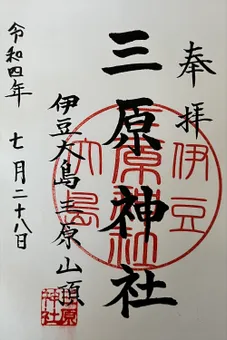 奉拝
三原神社
伊豆大島三原山頂
令和四年 七月二十八日
伊豆
三原神社
大島
三原神社